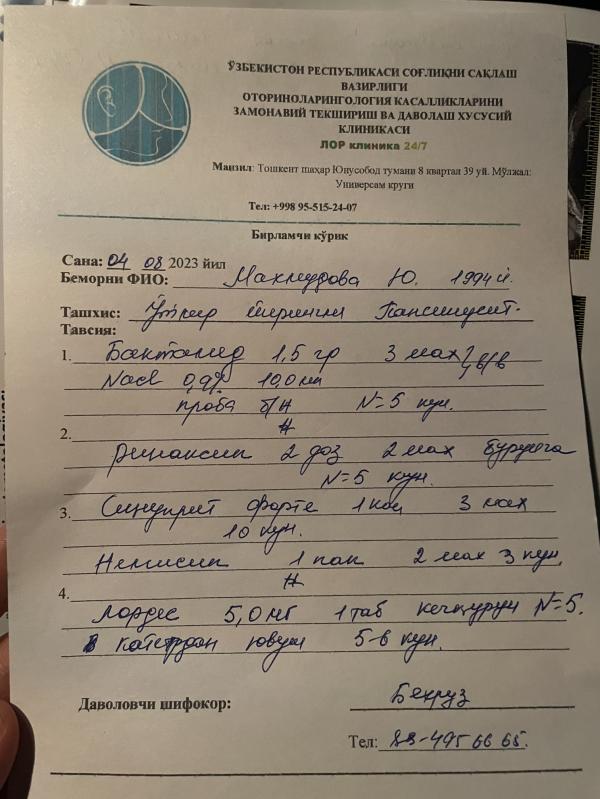 ЎЗБЕКИСТОН РЕСПУБЛИКАСИ СОҒЛИҚНИ САҚЛАШ
ВАЗИРЛИГИ
ОТОРИНОЛАРИНГОЛОГИЯ КАСАЛЛИКЛАРИНИ
ЗАМОНАВИЙ ТЕКШИРИШ ВА ДАВОЛАШ ХУСУСИЙ
КЛИНИКАСИ
ЛОР клиника 24/7
Манзил: Тошкент шаҳар Юнусобод тумани 8 квартал 39 уй. Мўлжал:
Универсам круги
Тел: +998 95-515-24-07
Бирламчи кўрик
Сана: 04 08 2023 йил
Беморни ФИО: Махмудова Ю. 1994 й.
Ташхис: Ўткир йирингли Пансинусит.
Тавсия:
1. Бактамед 1,5 гр 3 мах в/в
NaCl 0,9% 10,0 мл
проба б/н N=5 кун.
2.
Ринаксил 2 доз 2 мах бурунга
N=5 кун.
3. Синупрет форте 1 кап 3 мах
10 кун.
Немисил 1 пак 2 мах 3 кун.
4.
Лордес 5,0 мг 1 таб кечқурун N=5.
катетрдан ювиш 5-6 кун.
Даволовчи шифокор: Бехруз
Тел: 495 66 65.